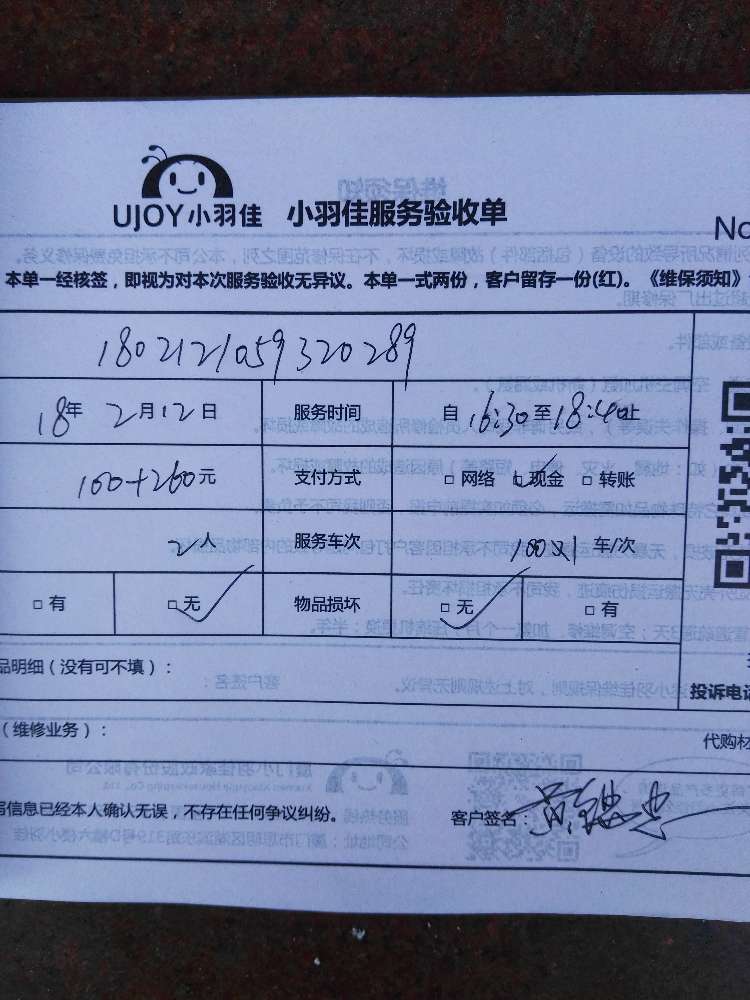 UJOY小羽佳 小羽佳服务验收单
No
本单一经核签，即视为对本次服务验收无异议。本单一式两份，客户留存一份(红)。《维保须知》
1802121059320289
18年 2月12日 服务时间 自 16:30至18:40止
100+260元 支付方式 □ 网络 ☑现金 □ 转账
2人 服务车次 100×1 车/次
□ 有 ☑无 物品损坏 ☑无 □ 有
品明细（没有可不填）：
投诉电话
（维修业务）：
代购材
信息已经本人确认无误，不存在任何争议纠纷。 客户签名：